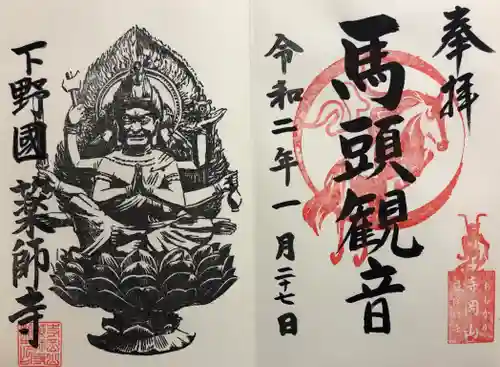 奉拝
馬頭観音
令和二年一月二十七日
下野國薬師寺